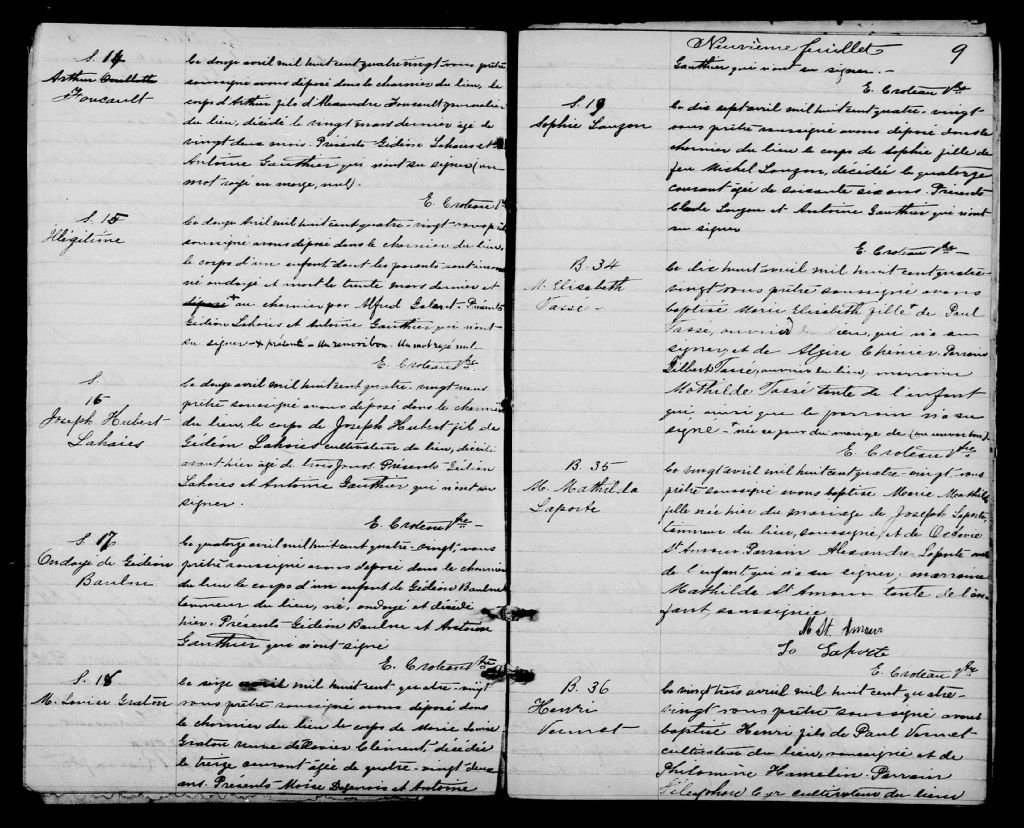 S. 14
Arthur Ouellette
Foucault
Ce douze avril mil huit cent quatre vingt nous prêtre
soussigné avons déposé dans le charnier du lieu, le
corps d'Arthur fils d'Alexandre Foucault journalier
du lieu, décédé le vingt mars dernier âgé de
vingt deux mois. Présents Gédéon Lahaies et
Antoine Gauthier qui n'ont su signer (un
mot rayé en marge, nul).
E. Croteau Ptre
S. 15
Illégitime
Ce douze Avril mil huit cent quatre-vingt nous prêtre
soussigné avons déposé dans le charnier du lieu,
le corps d'un enfant, dont les parents sont inconnus
né ondoyé et mort le trente mars dernier et
déposé + au charnier par Alfred Présents
Gédéon Lahaies et Antoine Gauthier qui n'ont
su signer - + présenté - Un renvoi bon - Un mot rayé nul -
E. Croteau Ptre
S.
16
Joseph Hubert
Lahaies
Ce douze avril mil huit cent quatre-vingt nous
prêtre soussigné avons déposé dans le charnier
du lieu, le corps de Joseph Hubert fils de
Gédéon Lahaies cultivateur du lieu, décédé
avant hier âgé de trois jours. Présents Gédéon
Lahaies et Antoine Gauthier qui n'ont su
signer.
E. Croteau Ptre -
S. 17
Ondoyé de Gédéon
Baulne
Ce quatorze avril mil huit cent quatre-vingt, nous
prêtre soussigné avons déposé dans le charnier
du lieu le corps d'un enfant de Gédéon Baulne
tanneur du lieu, né, ondoyé et décédé
hier. Présents Gédéon Baulne et Antoine
Gauthier qui n'ont signé
E. Croteau Ptre
S. 18
M. Louise Graton
Ce seize avril mil huit cent quatre-vingt
nous prêtre soussigné avons déposé dans
le charnier du lieu le corps de Marie Louise
Graton veuve de Xavier Clément, décédée
le treize courant âgée de quatre-vingt deux
ans. Présents Moïse et Antoine
Neuvième feuillet
9
Gauthier qui n'ont su signer. -
E. Croteau Ptre
S. 19
Sophie Lauzon
Ce dix sept avril mil huit cent quatre-vingt
nous prêtre soussigné avons déposé dans le
charnier du lieu le corps de Sophie fille de
feu Michel Lauzon, décédée le quatorze
courant âgée de soixante six ans. Présents
Lauzon et Antoine Gauthier qui n'ont
su signer
E. Croteau Ptre -
B. 34
M. Elisabeth
Tassé -
Ce dix huit avril mil huit cent quatre-
vingt nous prêtre soussigné avons
baptisé Marie Elisabeth fille + de Paul
Tassé, ouvrier du lieu, qui n'a su
signer, et de Algire Chénier. Parrain
Dilbert Tassé, ouvrier du lieu, marraine
Mathilde Tassé tante de l'enfant
qui, ainsi que le parrain n'a su
signe - + née ce jour du mariage de (un renvoi bon)
E. Croteau Ptre
B. 35
M. Mathilda
Laporte
Ce vingt avril mil huit cent quatre-vingt nous
prêtre soussigné avons baptisé Marie Mathilda
fille née hier du mariage de Joseph Laporte,
tanneur du lieu, soussigné, et de Octavie
St Amour. Parrain Alexandre Laporte
de l'enfant, qui n'a su signer, marraine
Mathilda St Amour tante de l'en-
fant, soussignée
M St. Amour
Jo Laporte
E. Croteau Ptre
B. 36
Henri
Vernet
Ce vingt trois avril mil huit cent quatre-
vingt nous prêtre soussigné avons
baptisé Henri fils de Paul Vernet
cultivateur du lieu, soussigné et de
Philomène Hamelin. Parrain
Télesphore cultivateur du lieu